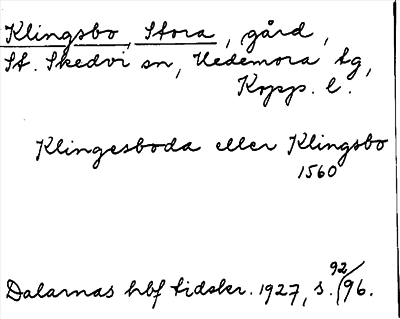 Klingsbo, Stora, gård,
St. Skedvi sn, Hedemora tg,
Kopp. l.
Klingesboda eller Klingsbo
1560
Dalarnas hbf tidskr. 1927, s. 92/96.